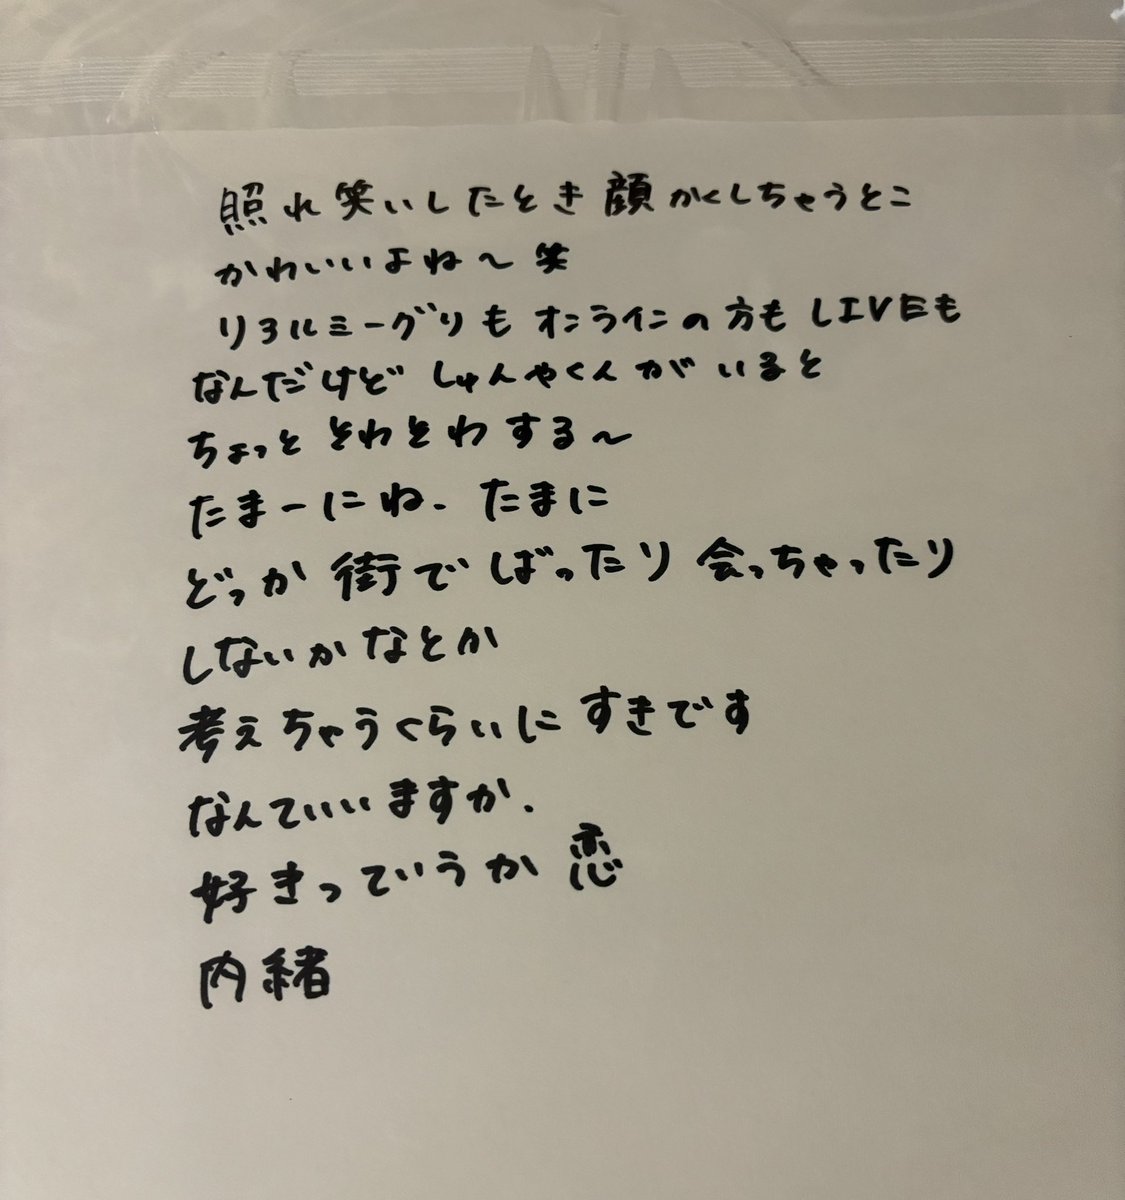 照れ笑いしたとき顔かくしちゃうとこ
かわいいよね〜笑
リアルミーグリもオンラインの方もLIVEも
なんだけどしゅんやくんがいると
ちょっとそわそわする〜
たまーにね.たまに
どっか街でばったり会っちゃったり
しないかなとか
考えちゃうくらいにすきです
なんていいますか.
好きっていうか恋
内緒